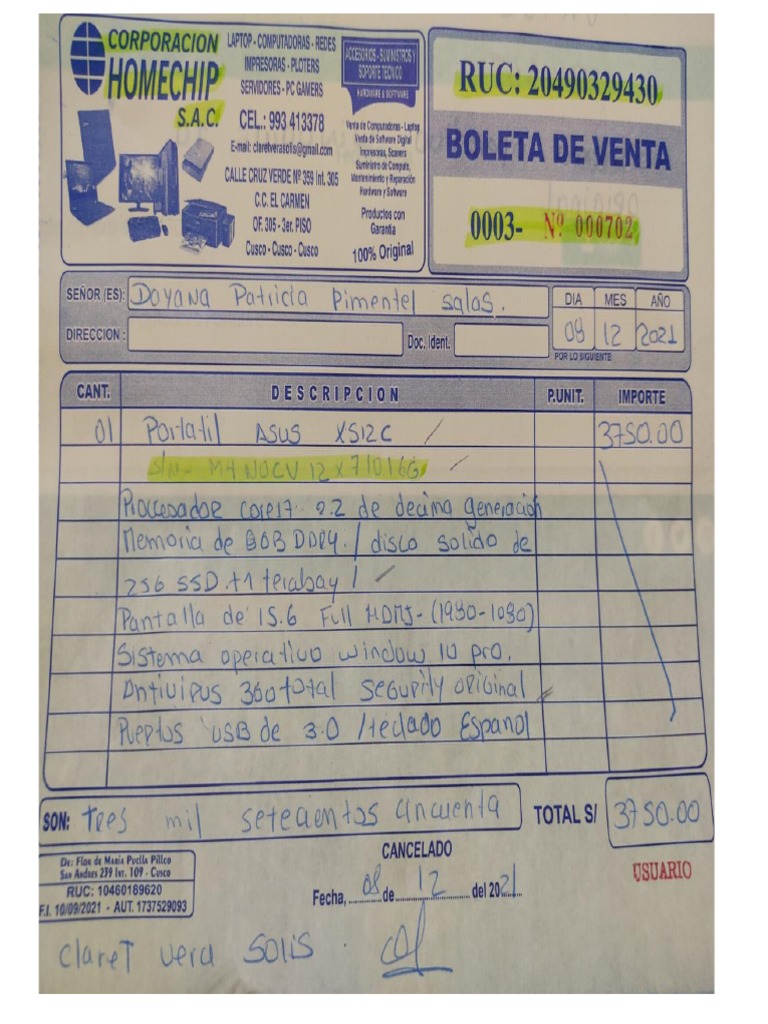 CORPORACION
HOMECHIP
S.A.C.
LAPTOP - COMPUTADORAS - REDES
IMPRESORAS - PLOTERS
SERVIDORES - PC GAMERS
CEL.: 993 413378
E-mail: claretverasolis@gmail.com
CALLE CRUZ VERDE Nº 359 Int. 305
C.C. EL CARMEN
OF. 305 - 3er. PISO
Cusco - Cusco - Cusco
ACCESORIOS - SUMINISTROS Y
SOPORTE TECNICO
HARDWARE & SOFTWARE
Venta de Computadoras - Laptop
Venta de Software Digital
Impresoras, Scaners
Suministro de Computo,
Mantenimiento y Reparación
Hardware y Software
Productos con
Garantia
100% Original
RUC: 20490329430
BOLETA DE VENTA
0003- Nº 000702
SEÑOR (ES): Dayana Patricia Pimentel Salas.
DIRECCION :
Doc. Ident.
DIA MES AÑO
08 12 2021
POR LO SIGUIENTE
CANT. DESCRIPCION P.UNIT. IMPORTE
01 Portatil ASUS X512C / 3750.00
S/N- M4N0CV12X71016G /
Processador corei7. 2.2 de decima generación
Memoria de 8GB DDR4. / disco solido de
256 SSD.+1 terabay /
Pantalla de 15.6 Full HDMI- (1980-1080)
Sistema operativo window 10 pro.
Antivirus 360 total segurity original
Puertos USB de 3.0 / teclado Español
SON: tres mil setecientos cincuenta TOTAL S/ 3750.00
CANCELADO
Fecha, 08 de 12 del 2021
USUARIO
De: Flor de Maria Puclla Pillco
San Andres 239 Int. 109 - Cusco
RUC: 10460169620
F.I. 10/09/2021 - AUT. 1737529093
Claret Vera SOLIS